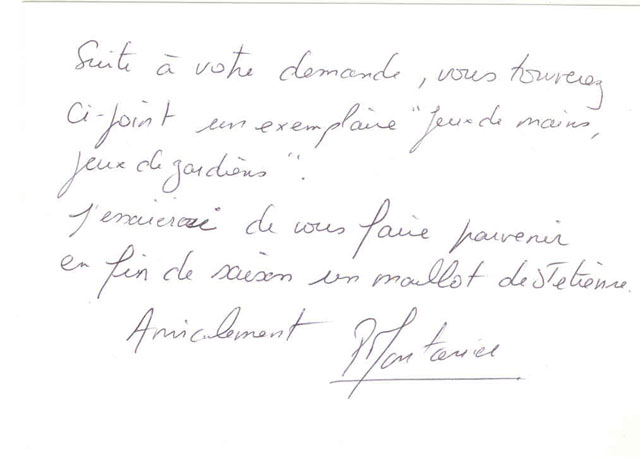 Suite à votre demande, vous trouverez
ci-joint un exemplaire "Jeux de mains,
jeux de gardiens".
J'essaierai de vous faire parvenir
en fin de saison un maillot de St etienne.
Amicalement